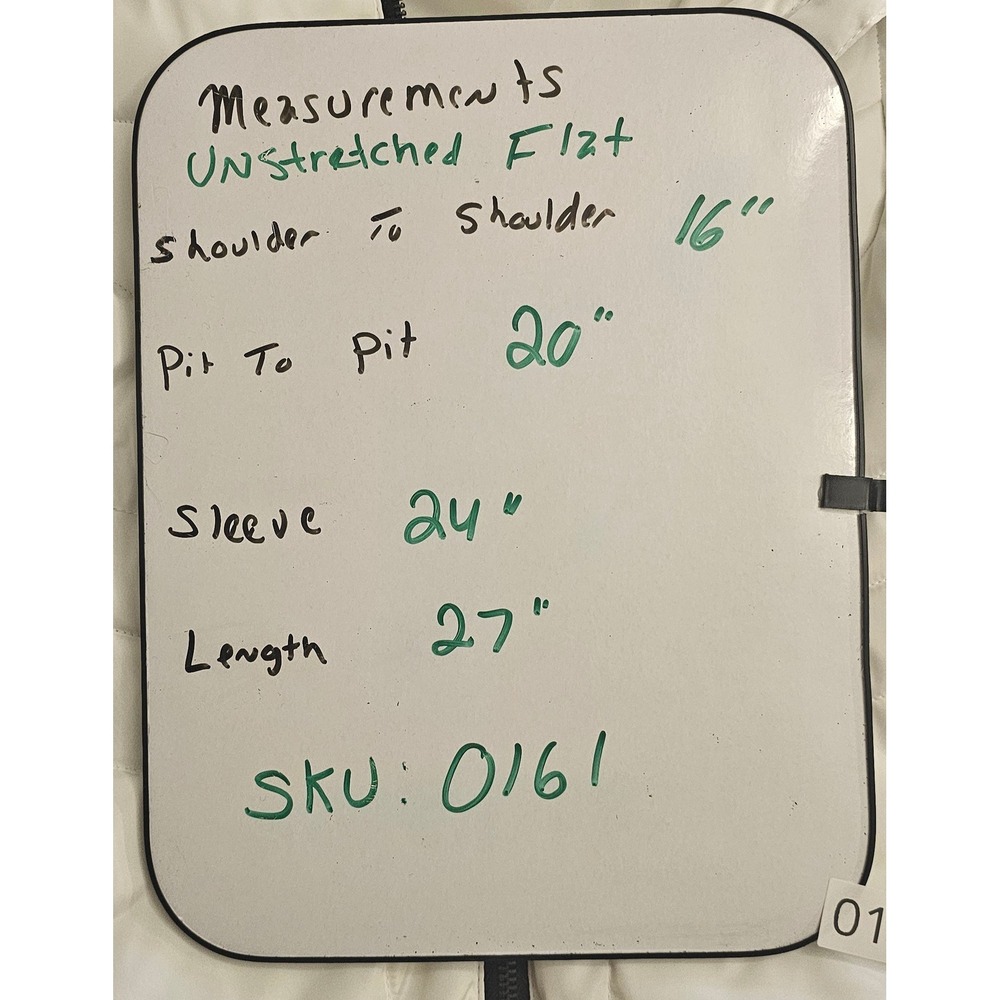 Measurements
Unstretched Flat
Shoulder To Shoulder 16"
Pit To Pit 20"
Sleeve 24"
Length 27"
SKU: 0161
01